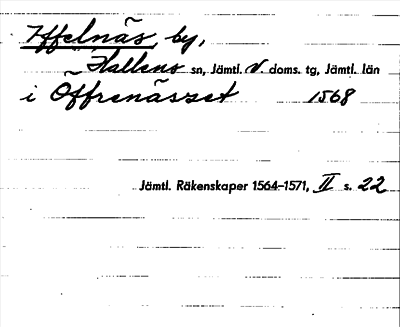 Yffelnäs, by,
Hallens sn, Jämtl. V. doms. tg, Jämtl. län
i Öffrenässet 1568
Jämtl. Räkenskaper 1564-1571, II s. 22